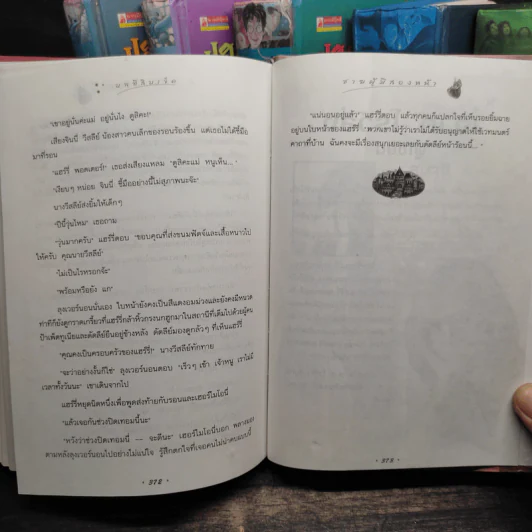 แฮร์รี่
"เขาอยู่นั่นคะแม่ อยู่นั่นไง ดูสิคะ!"
เสียงจินนี่ วีสลีย์ น้องสาวคนเล็กของรอนร้องขึ้น แต่เธอไม่ได้ชี้มือ
มาที่รอน
"แฮร์รี่ พอตเตอร์!" เธอส่งเสียงแหลม "ดูสิคะแม่ หนูเห็น..."
"เงียบๆ หน่อย จินนี่ ชี้มืออย่างนี้ไม่สุภาพนะจ๊ะ"
นางวีสลีย์ส่งยิ้มให้เด็กๆ
"ปีนี้วุ่นไหม" เธอถาม
"วุ่นมากครับ" แฮร์รี่ตอบ "ขอบคุณที่ส่งขนมฟัดจ์และเสื้อหนาวไป
ให้ครับ คุณนายวีสลีย์"
"ไม่เป็นไรหรอกจ้ะ"
"พร้อมหรือยัง แก"
ลุงเวอร์นอนนั่นเอง ใบหน้ายังคงเป็นสีแดงอมม่วงและยังคงมีหนวด
ท่าทีก็ยังดูกราดเกรี้ยวที่แฮร์รี่กล้าหิ้วกรงนกฮูกมาในสถานีที่เต็มไปด้วยผู้คน
ป้าเพ็ตทูเนียและดัดลีย์ยืนอยู่ข้างหลัง ดัดลีย์มองดูกลัวๆ ที่เห็นแฮร์รี่
"คุณคงเป็นครอบครัวของแฮร์รี่!" นางวีสลีย์ทักทาย
"จะว่าอย่างงั้นก็ใช่" ลุงเวอร์นอนตอบ "เร็วๆ เข้า เจ้าหนู เราไม่มี
เวลาทั้งวันนะ" เขาเดินจากไป
แฮร์รี่หยุดนิดหนึ่งเพื่อพูดส่งท้ายกับรอนและเฮอร์ไมโอนี่
"แล้วเจอกันช่วงปิดเทอมนี้นะ"
"หวังว่าช่วงปิดเทอมนี้ -- จะดีนะ" เฮอร์ไมโอนี่บอก พลางมอง
ตามหลังลุงเวอร์นอนไปอย่างไม่แน่ใจ รู้สึกตกใจที่เจอคนไม่น่าคบแบบนี้
372
ชายผู้มีสองหน้า
"แน่นอนอยู่แล้ว" แฮร์รี่ตอบ แล้วทุกคนก็แปลกใจที่เห็นรอยยิ้มฉาย
อยู่บนใบหน้าของแฮร์รี่ "พวกเขาไม่รู้ว่าเราไม่ได้รับอนุญาตให้ใช้เวทมนตร์
คาถาที่บ้าน ฉันคงจะมีเรื่องสนุกเยอะเลยกับดัดลีย์หน้าร้อนนี้..."
373